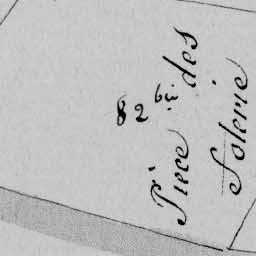 82 bis
Piece des
Solerie